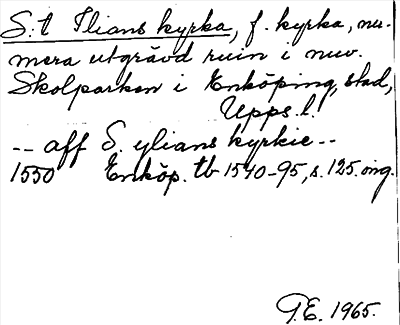 S:t Ilians kyrka, f. kyrka, nu-
mera utgrävd ruin i nuv.
Skolparken i Enköping, stad,
Upps. l.
-- aff S. ylians kyrkie --
1550 Enköp. tb 1540-95, s. 125. orig.
T.E. 1965.